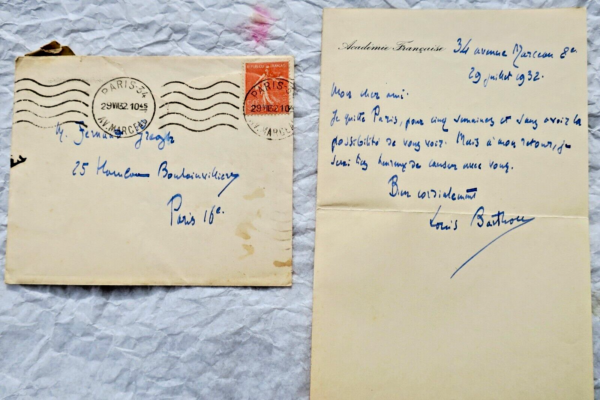 PARIS-34
29 VII 32. 10 45
AV. MARCEAU
29 VII 32. 10
AV. MARCEAU
M. Fernand Gregh
25 Hameau Boulainvilliers
Paris 16e.
Académie Française
34 avenue Marceau 8e
29 juillet 1932.
Mon cher ami.
Je quitte Paris, pour cinq semaines et sans avoir la
possibilité de vous voir. Mais à mon retour, je
serai très heureux de causer avec vous.
Bien cordialement
Louis Barthou